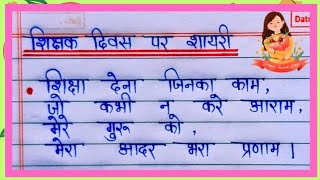 Date
शिक्षक दिवस पर शायरी
शिक्षा देना जिनका काम,
जो कभी न करे आराम,
मेरे गुरू को,
मेरा आदर भरा प्रणाम।